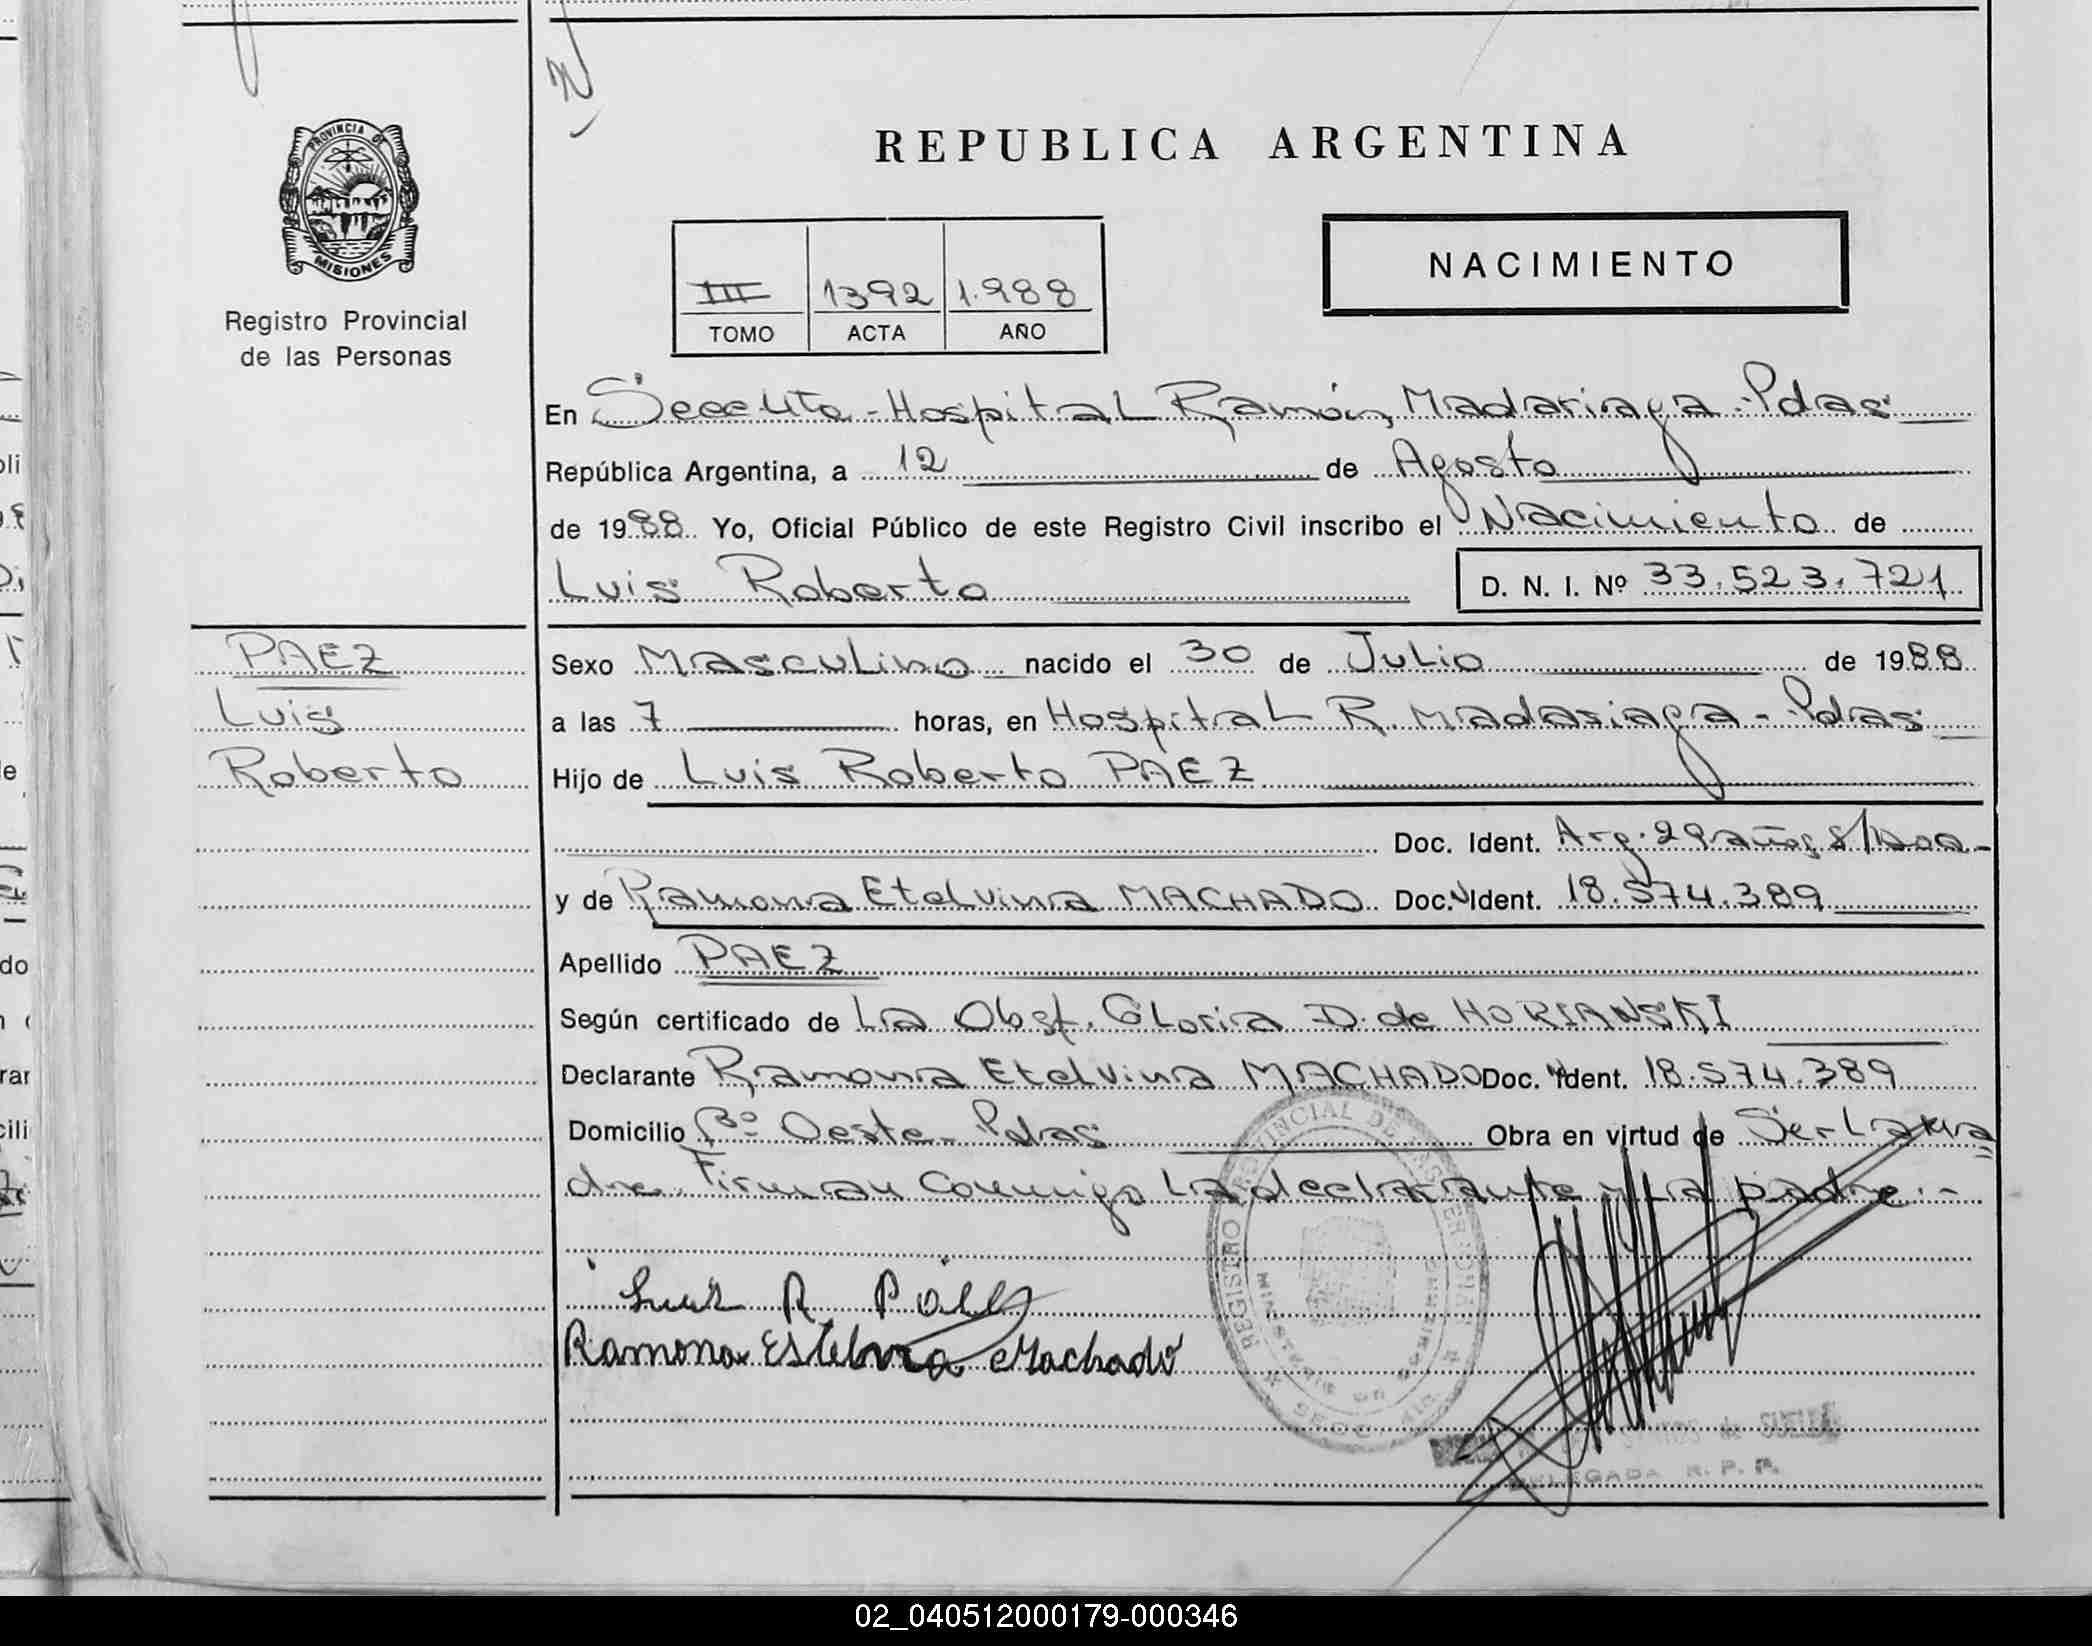 REPUBLICA ARGENTINA
PROVINCIA DE
MISIONES
Registro Provincial
de las Personas
NACIMIENTO
III 1392 1.988
TOMO ACTA AÑO
En Secc Hospital Ramón Madariaga - Pdas
República Argentina, a 12 de Agosto
de 1988 Yo, Oficial Público de este Registro Civil inscribo el Nacimiento de
Luis Roberto D. N. I. Nº 33.523.721
PAEZ
Luis
Roberto
Sexo Masculino nacido el 30 de Julio de 1988
a las 7 horas, en Hospital R. Madariaga - Pdas
Hijo de Luis Roberto PAEZ
Doc. Ident. Arg. 29 años S/
y de Ramona Etelvina MACHADO Doc. Ident. 18.574.389
Apellido PAEZ
Según certificado de La Obst. Gloria D. de HORIANSKI
Declarante Ramona Etelvina MACHADO Doc. Ident. 18.574.389
Domicilio Bº Oeste - Pdas Obra en virtud de Ser La ma
dre. Firman Conmigo La declarante y padre.-
Luis R Páez
Ramona Estelvina Machado
REGISTRO PROVINCIAL DE
DELEGADA R. P. P.
02_040512000179-000346